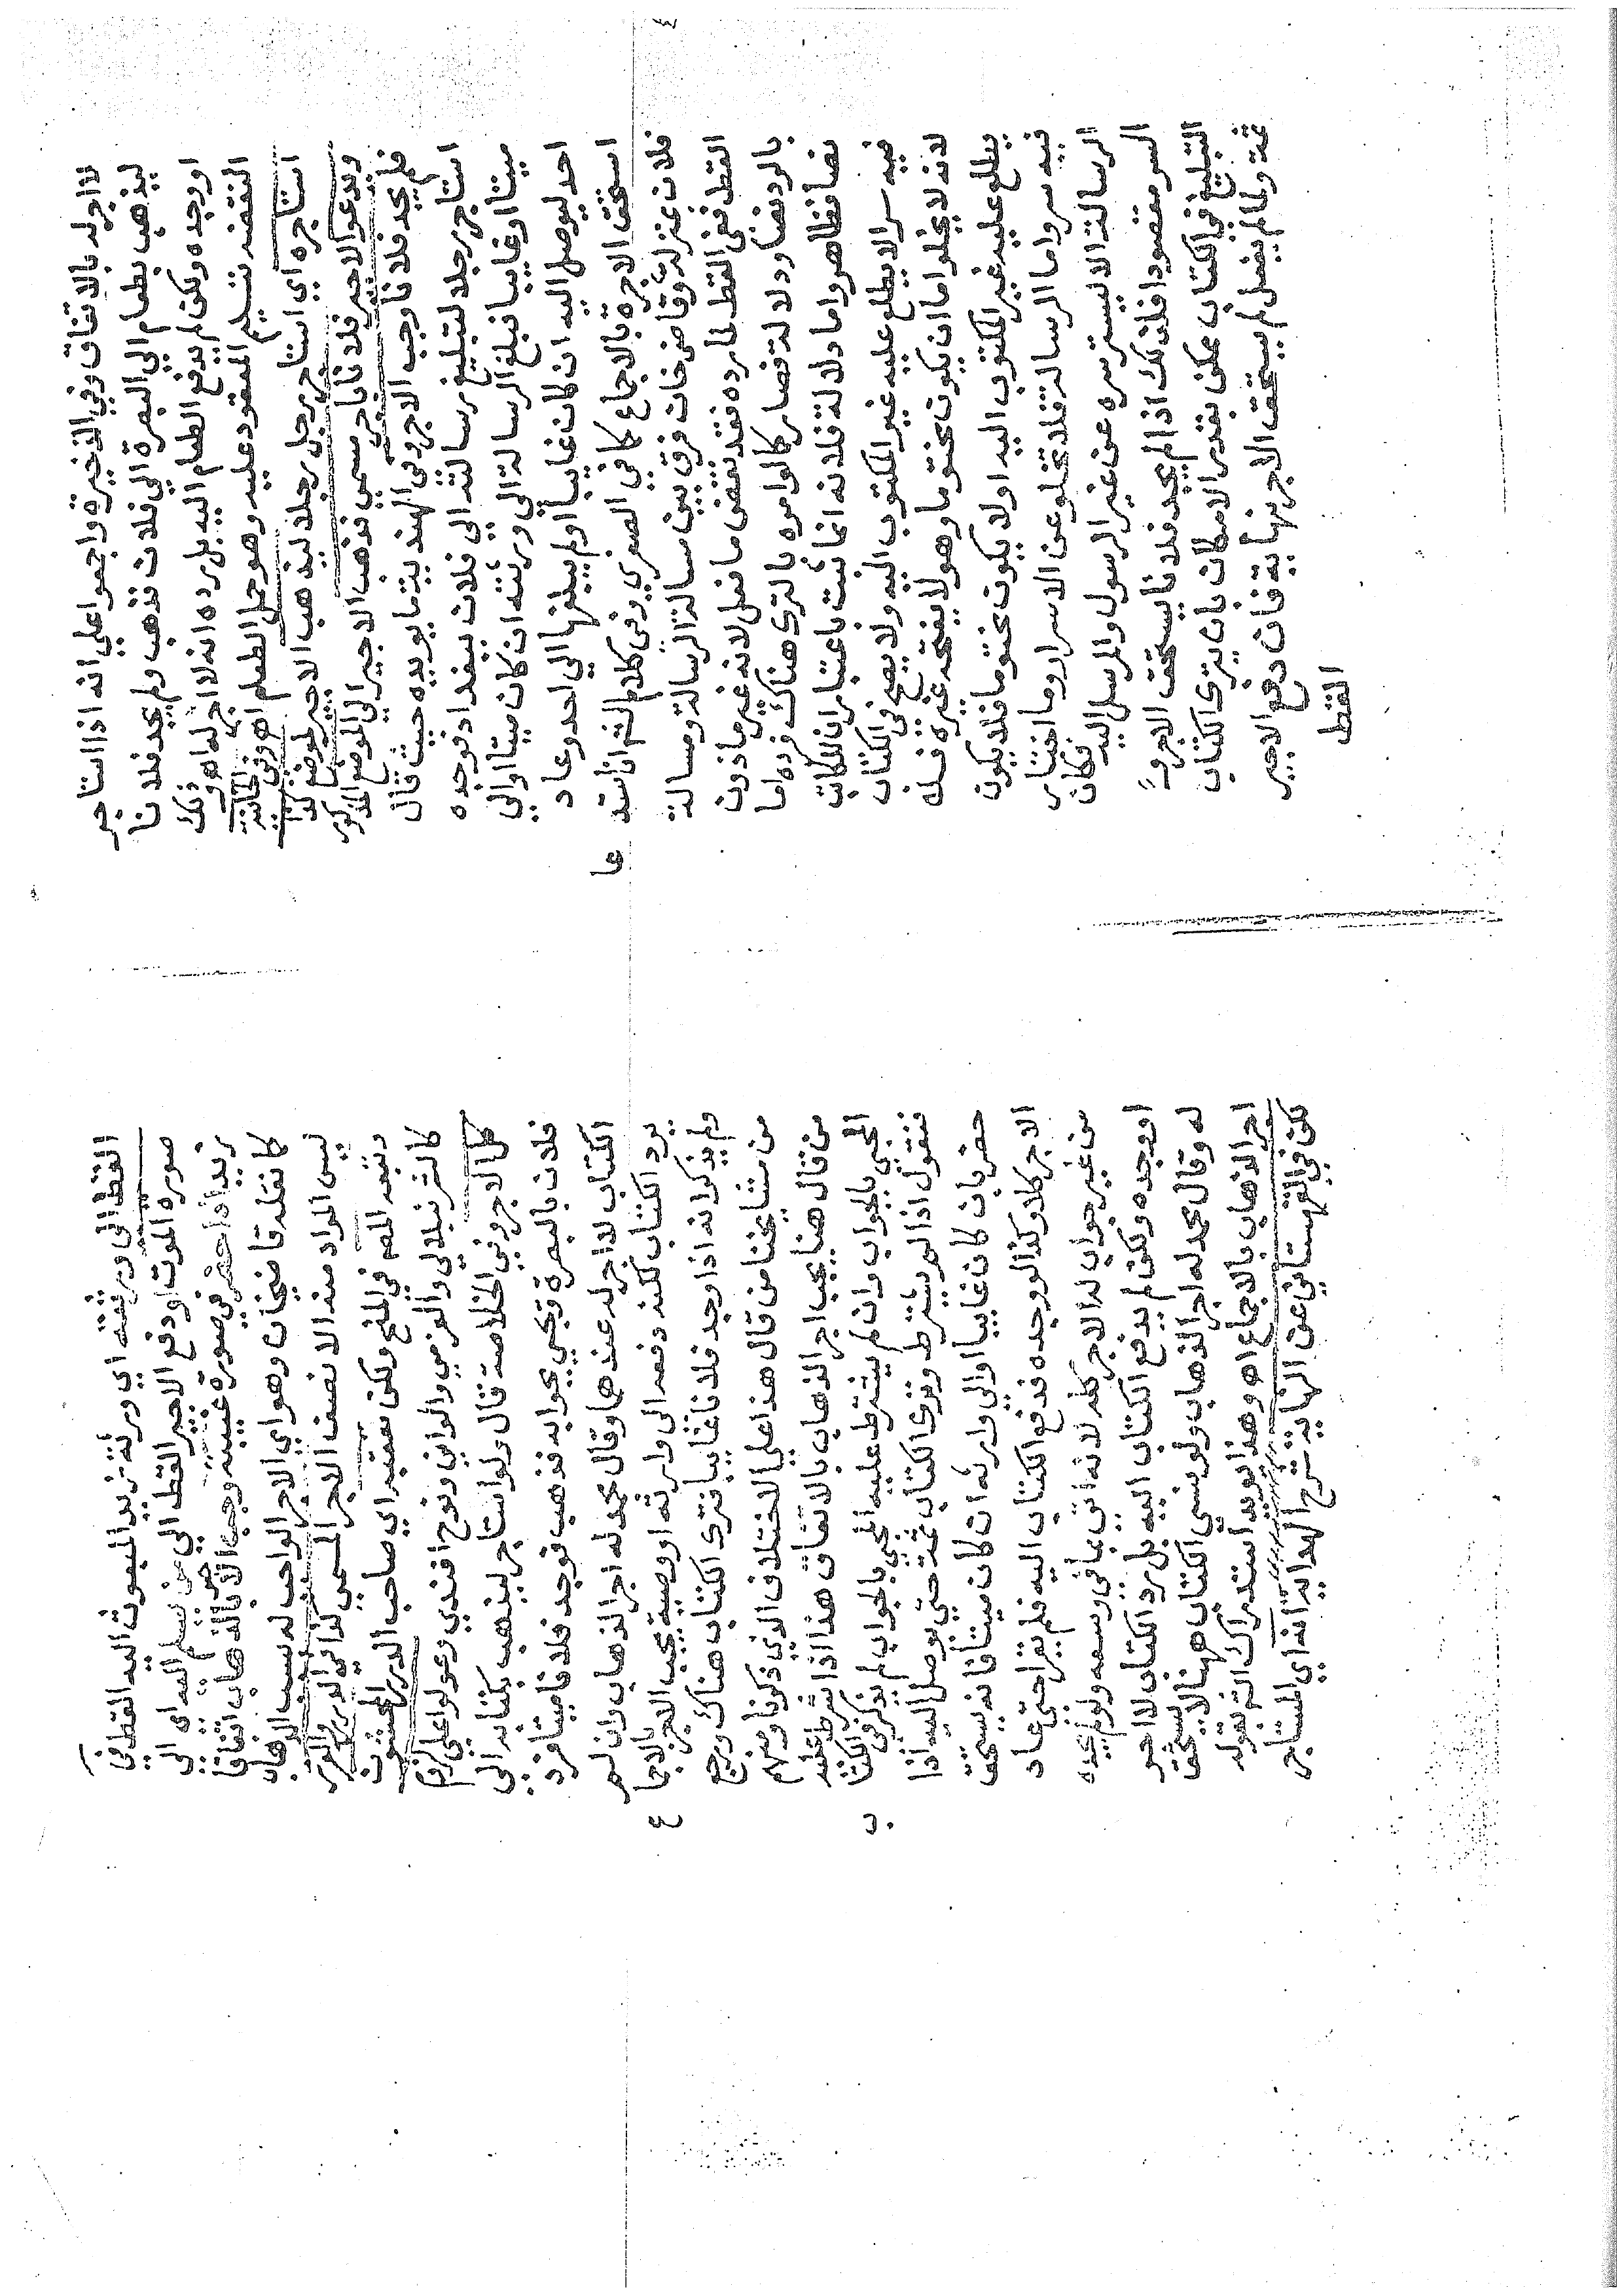 لا اجر له بالاتفاق وفي الذخيرة واجمعوا علي انه اذا استاجر
ليذهب بطعام الي البصرة الي فلان فذهب ولم يجد فلانا
او وجده ولكن لم يدفع الطعام اليه بل رده انه لا اجر له اه وذلك
لنقضه تسليم المعقود عليه وهو حمل الطعام اه وفي الخانية
استاجره اي استاجر رجل رجلا ليذهب الاجير لموضع كذا
ويدعو الاجير فلانا باجر مسمي فذهب الاجير الي الموضع المذكور
فلم يجد فلانا وجب الاجر وفي الهندية ما يويده حيث قال
استاجر رجلا لتبليغ رسالته الي فلان ببغداد فوجده
ميتا او غايبا فبلغ الرسالة الي ورثته ان كان ميتا او الي
احد ليوصل اليه ان كان غايبا او لم يبلغها الي احد وعاد
استحق الاجرة بالاجماع كما في الصغري وفي كلام الشم
فلان عزلة وقاضي خان فرق بين مسالة الرسالة ومسالة
القط ففي القط لما رده فقد نقض ما فعل لانه غير ماذون
بالرد نصا ودلالة فصار كما لو امره بالترك هناك فرده اما
نصا فظاهر واما دلالة فلانه انما يثبت باعتبار ان المكان
فيه سر لا يطلع عليه غير المكتوب اليه ولا يصح في الكتاب
لانه لا يخلوا اما ان يكون مختوما وهو لا يفتحه غيره فله
يطلع عليه غير المكتوب اليه او لا يكون مختوما فلا يكون
فيه سر واما الرسالة فلا تخلو عن الاسرار وما اختار
الرسالة الا ليستر سره عن غير الرسول والمرسل اليه فكان
السر مقصودا فلذلك اذا لم يجد فلانا يستحق الاجر و
التبليغ في الكتاب ممكن بقدر الامكان بان يترك الكتاب
ثمة ولما لم يفعل لم يستحق الاجر نهاية فان دفع الاجير
القط
القط الى ورثته اي ورثة زيد المبعوث اليه القط في
صورة الموت او دفع الاجير القط الي من يسلم اليه اي الى
زيد اذا حضر في صورة غيبته وجب الاجر بالذهاب اتفاقا
كما نقله قاضيخان وهو اي الاجر الواجب له بسبب الذهاب
ليس المراد منه الا نصف الاجر المسمي كذا في الدرر والغرر
وتبعه المص في المنح ولكن تعقبه اي صاحب الدرر المحشون
كالشرنبلالي والعزمي والواني ونوح افندي وعولوا علي لزوم
كل الاجر وفي الخلاصة قال ولو استاجر ليذهب بكتابه الي
فلان بالبصرة ويجي بجوابه فذهب فوجد فلانا ميتا فرد
الكتاب لا اجر له عندهما وقال محمد له اجر الذهاب وان لم
يرد الكتاب لكنه دفعه الى وارثه او وصيه يجب الاجر بالاجما
ولم يذكر انه اذا وجد فلانا غايبا فترك الكتاب هناك ورجع
من مشايخنا من قال هذا علي الاختلاف الذي ذكرنا ومنهم
من قال هنا يجب اجر الذهاب بالاتفاق هذا اذا شرط عليه
المجي بالجواب وان لم يشترط عليه المجي بالجواب لم يذكر في الكتا
فنقول اذا لم يشترط وترك الكتاب ثمة حتي يوصل اليه اذا
حضر بان كان غايبا او الي وارثه ان كان ميتا فانه يستحق
الاجر كملا وكذا لو وجده فدفع الكتاب اليه فلم يقرا حتي عاد
من غير جواب له الاجر كله لانه اتي بما في وسعه ولو لم يجده
او وجده ولكن لم يدفع الكتاب اليه بل رد الكتاب لا اجر
له وقال محمد له اجر الذهاب ولو نسي الكتاب ههنا لا يستحق
اجر الذهاب بالاجماع اه وهذا يويد استدراك الش بقوله
لكن في القهستاني عن النهاية شرح الهداية انه اي المستاجر